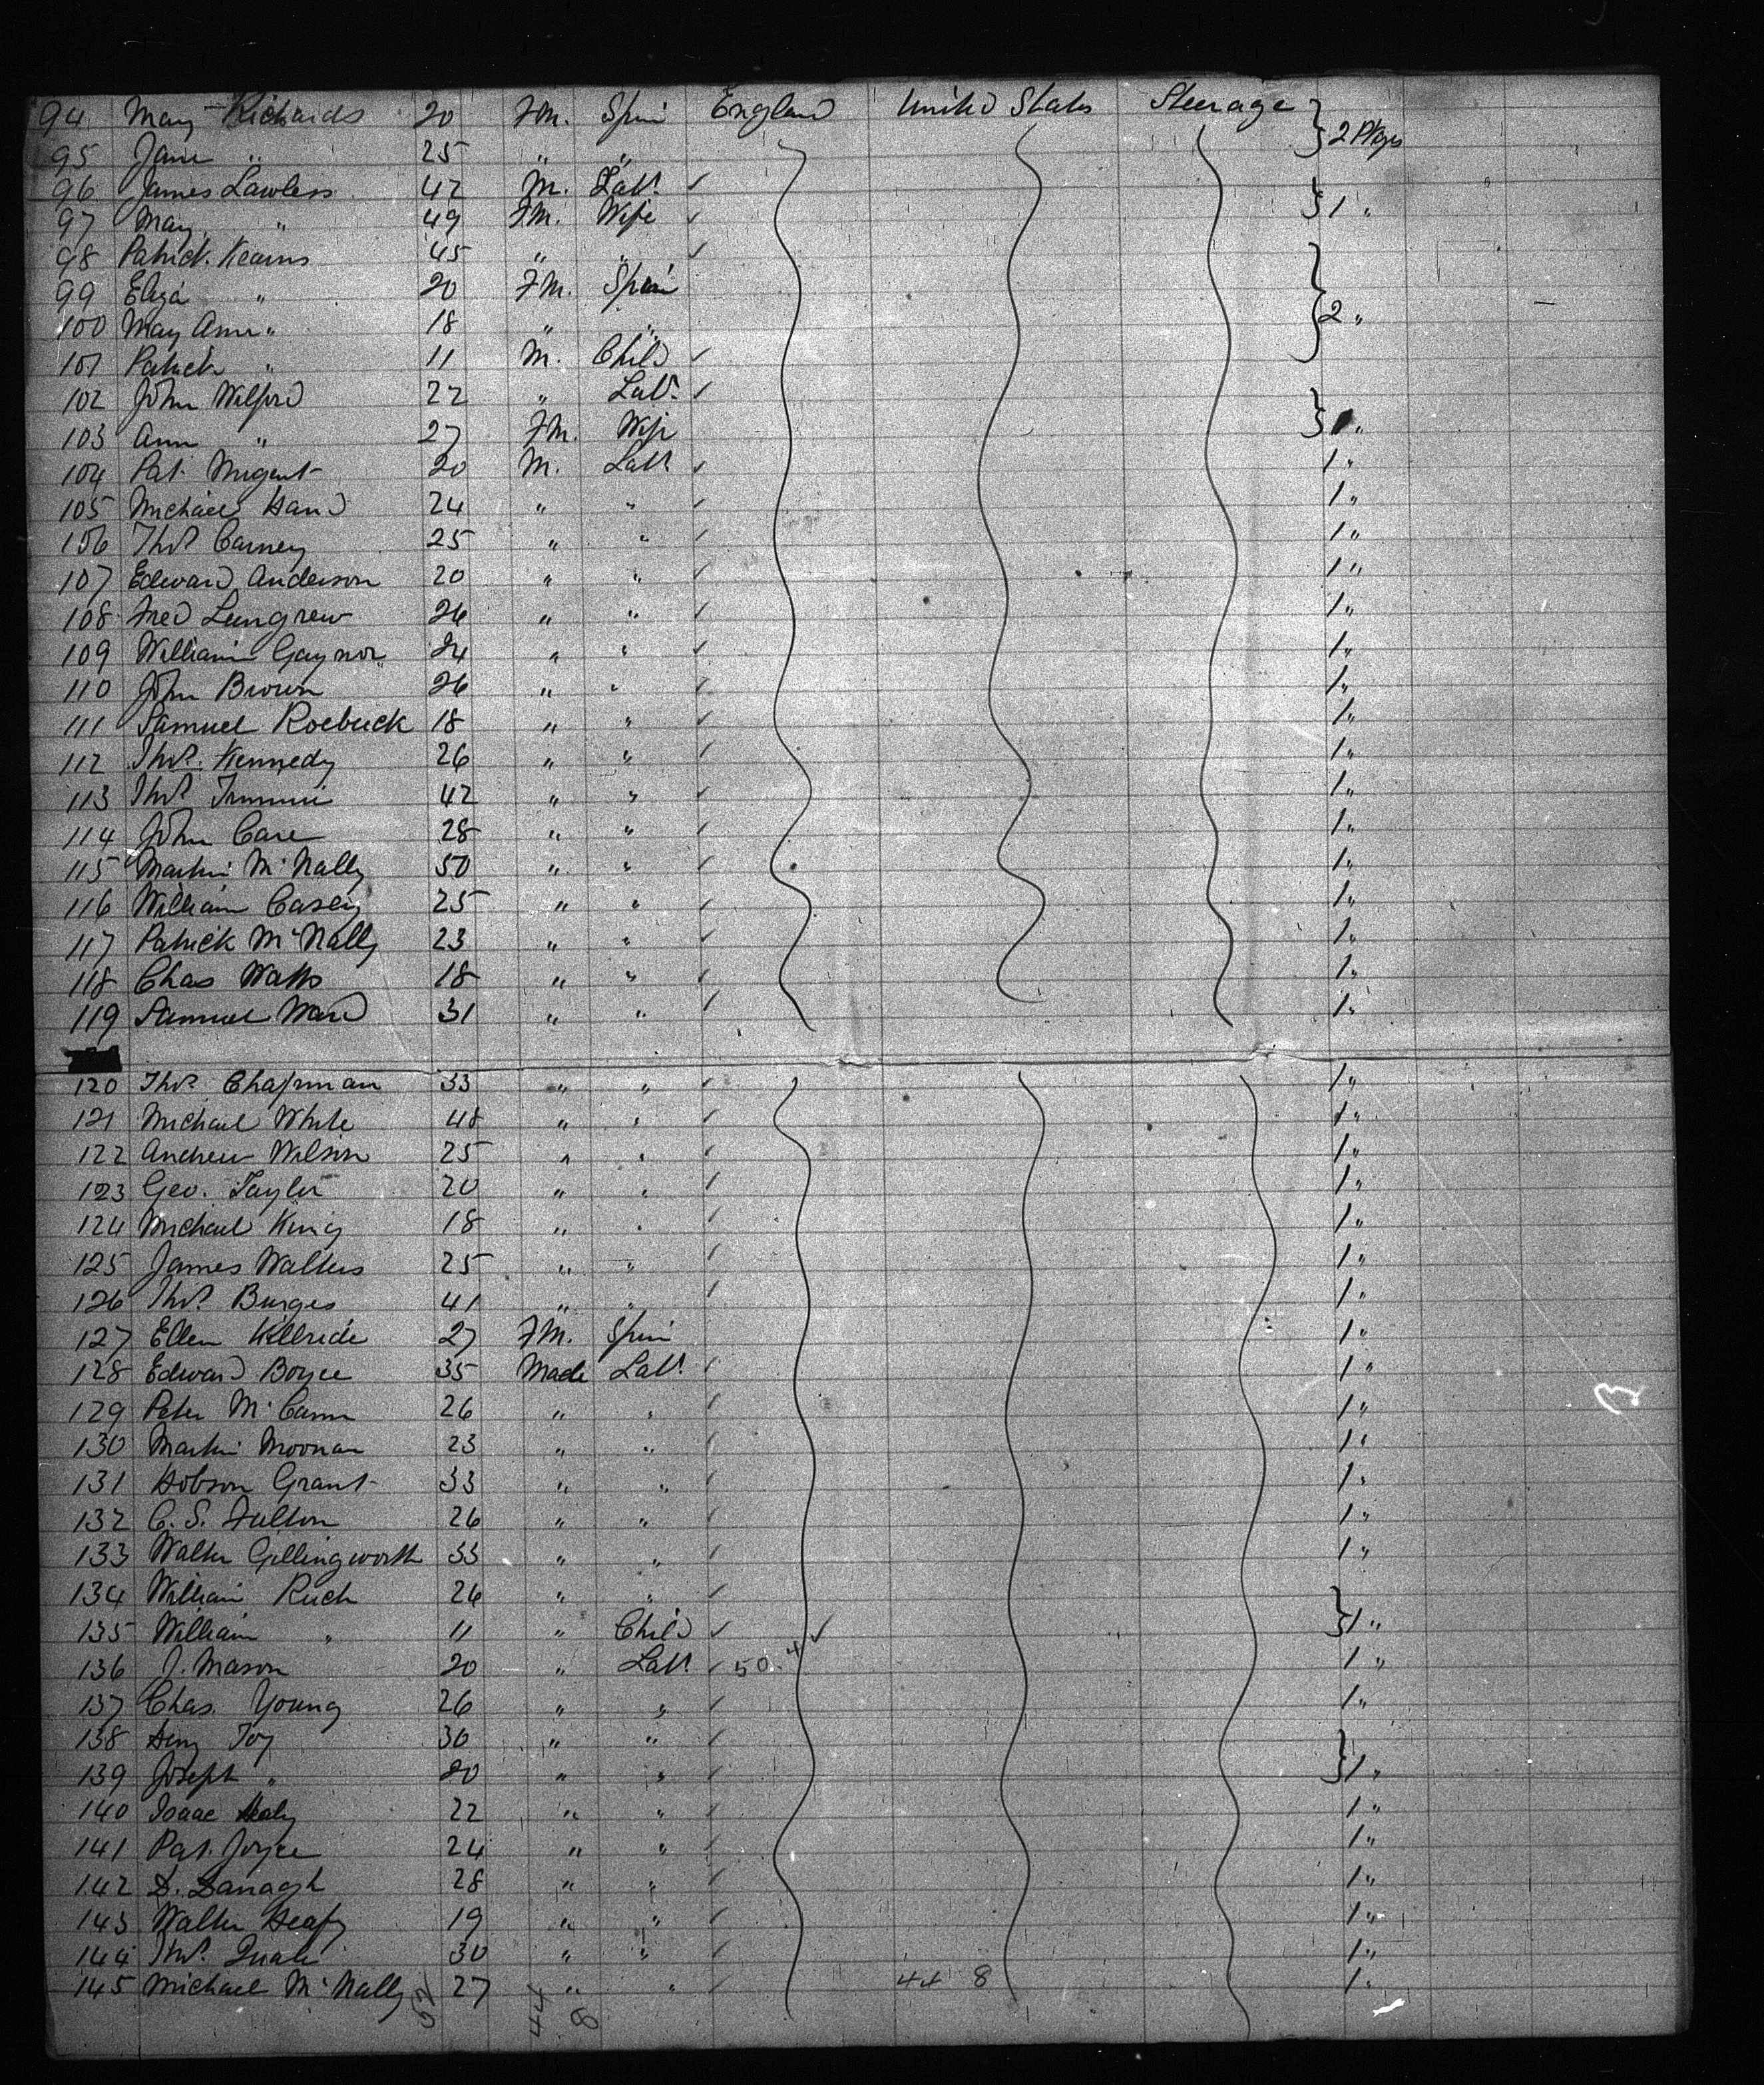 94 Mary Richards 20 Fm. Spin England United States Steerage } 2 Pkgs
95 Jane " 25 " "
96 James Lawless 42 M. Labr ✓ } 1 "
97 Mary " 49 Fm. Wife ✓
98 Patrick Kearns 45 " " ✓
99 Eliza " 20 Fm. Spin } 2 "
100 Mary Ann " 18 " "
101 Patrick " 11 M. Child ✓
102 John Wilford 22 " Labr ✓
103 Ann " 27 Fm. Wife } 1 "
104 Pat. Nugent 20 M. Labr ✓ 1 "
105 Michael Hand 24 " " ✓ 1 "
106 Thos Carney 25 " " ✓ 1 "
107 Edward Anderson 20 " " ✓ 1 "
108 Fred Lungrew 26 " " ✓ 1 "
109 William Gaynor 24 " " ✓ 1 "
110 John Brown 26 " " ✓ 1 "
111 Samuel Roebuck 18 " " ✓ 1 "
112 Thos. Kennedy 26 " " ✓ 1 "
113 Thos 42 " " ✓ 1 "
114 John Care 28 " " ✓ 1 "
115 Martin McNally 50 " " ✓ 1 "
116 William Casey 25 " " ✓ 1 "
117 Patrick McNally 23 " " ✓ 1 "
118 Chas Watts 18 " " ✓ 1 "
119 Samuel Ward 31 " " ✓ 1 "
120 Thos. Chapman 33 " " ✓ 1 "
121 Michael White 48 " " ✓ 1 "
122 Andrew Wilson 25 " " ✓ 1 "
123 Geo. Taylor 20 " " ✓ 1 "
124 Michael King 18 " " ✓ 1 "
125 James Walters 25 " " ✓ 1 "
126 Thos. Burges 41 " " ✓ 1 "
127 Ellen Kilbride 27 Fm. Spin 1 "
128 Edward Boyce 35 Made Labr ✓ 1 "
129 Peter McCann 26 " " ✓ 1 "
130 Martin Moonan 23 " " ✓ 1 "
131 Hobson Grant 33 " " ✓ 1 "
132 C. S. Fulton 26 " " ✓ 1 "
133 Walter Gillingworth 33 " " ✓ 1 "
134 William Ruch 26 " " ✓
135 William " 11 " Child ✓ ✓ } 1 "
136 J. Mason 20 " Labr ✓ 50 4 1 "
137 Chas. Young 26 " " ✓ 1 "
138 Heny Toy 30 " " ✓
139 Joseph " 20 " " ✓ } 1 "
140 Isaac Healy 22 " " ✓ 1 "
141 Pat. Joyce 24 " " ✓ 1 "
142 D. Danagh 28 " " ✓ 1 "
143 Walter Heafy 19 " " ✓ 1 "
144 Thos. Quale 30 " " ✓ 1 "
145 Michael McNally 27 " " ✓ 44 8 1 "
52 44 8